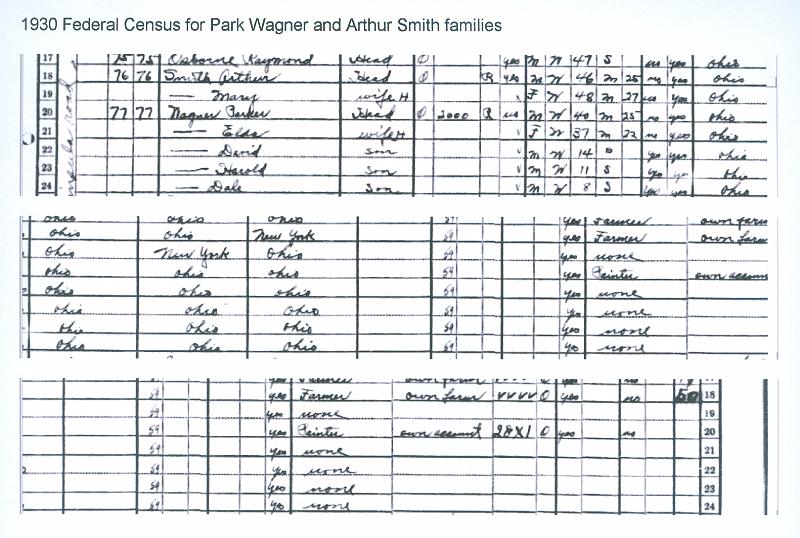 1930 Federal Census for Park Wagner and Arthur Smith families
17 75 75 Osborne Raymond Head O yes M W 47 S no yes Ohio
18 76 76 Smith Arthur Head O R yes M W 46 M 25 no yes Ohio
19 — Mary wife H v F W 48 M 27 no yes Ohio
20 77 77 Wagner Parker Head O 2000 R no M W 40 M 25 no yes Ohio
21 — Elda wife H v F W 37 M 22 no yes Ohio
22 — David son v M W 14 S yes yes Ohio
23 — Harold son v M W 11 S yes yes Ohio
24 — Dale son v M W 8 S yes yes Ohio
Ohio Ohio Ohio 59 yes Farmer own farm
Ohio Ohio New York 59 yes Farmer own farm
Ohio New York Ohio 59 yes none
Ohio Ohio Ohio 59 yes Painter own account
Ohio Ohio Ohio 59 yes none
Ohio Ohio Ohio 59 yes none
Ohio Ohio Ohio 59 yes none
Ohio Ohio Ohio 59 yes none
59 yes Farmer own farm VVVV O yes no 18
59 yes none 19
59 yes Painter own account 28X1 O yes no 20
59 yes none 21
59 yes none 22
59 yes none 23
59 yes none 24